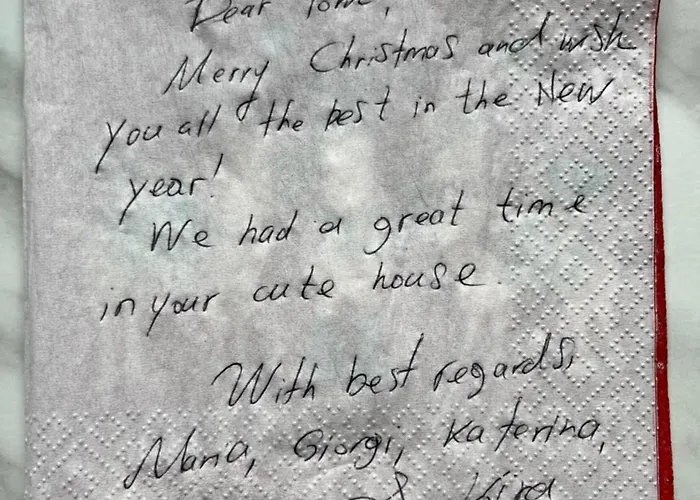 Dear
Merry Christmas and wish
you all the best in the New
year!
We had a great time
in your cute house.
With best regards,
Nana, Giorgi, Katerina,
& Kira